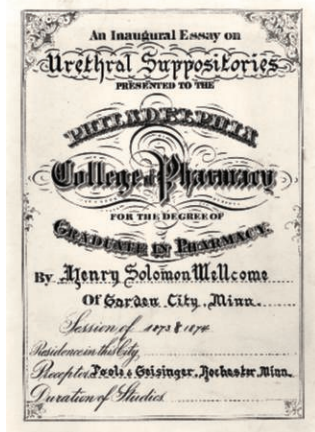 An Inaugural Essay on
Urethral Suppositories
PRESENTED TO THE
PHILADELPHIA
College of Pharmacy
FOR THE DEGREE OF
GRADUATE IN PHARMACY.
By Henry Solomon Wellcome
Of Garden City, Minn.
Session of 1873 & 1874
Residence in this City
Preceptor Poole & Geisinger, Rochester Minn.
Duration of Studies